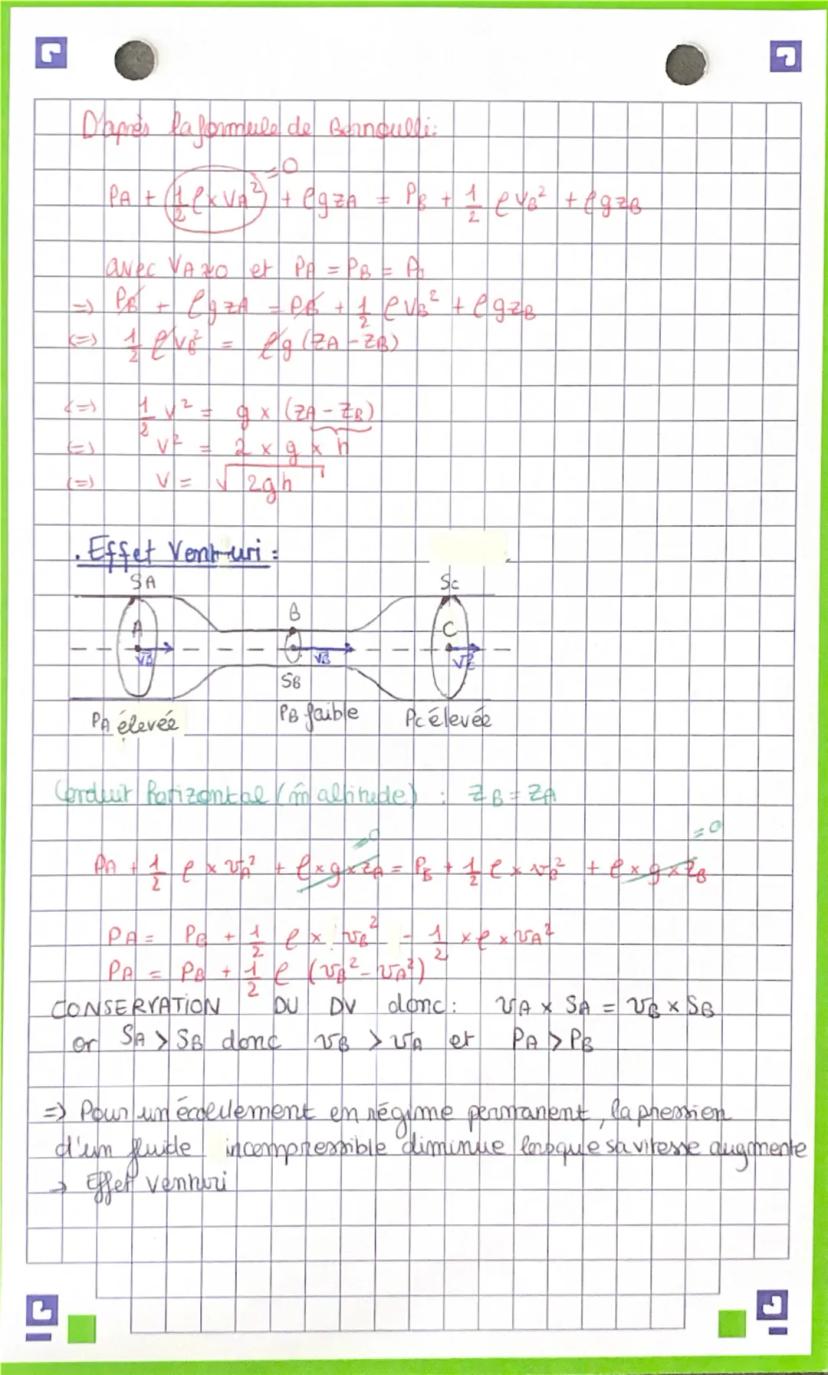 D'après la formule de Bernoulli:
=0
PA + (1/2 ρ x VA²) + ρgzA = PB + 1/2 ρ VB² + ρgzB
avec VA≈0 et PA = PB = P0
=> PB + ρgzA = PB + 1/2 ρ VB² + ρgzB
<=> 1/2 ρ VB² = ρg (zA - zB)
<=> 1/2 v² = g x (zA - zB)
<=> v² = 2 x g x h
<=> V = √2gh
. Effet Venturi :
SA Sc
B
A C
vA vB vC
SB
PA élevée PB faible Pc élevée
Conduit horizontal (m̂ altitude) : zB = zA
=0 =0
PA + 1/2 ρ x vA² + ρ x g x zA = PB + 1/2 ρ x vB² + ρ x g x zB
PA = PB + 1/2 ρ x vB² - 1/2 x ρ x vA²
PA = PB + 1/2 ρ (vB² - vA²)
CONSERVATION DU DV donc : vA x SA = vB x SB
or SA > SB donc vB > vA et PA > PB
=> Pour un écoulement en régime permanent, la pression
d'un fluide incompressible diminue lorsque sa vitesse augmente
→ Effet venturi